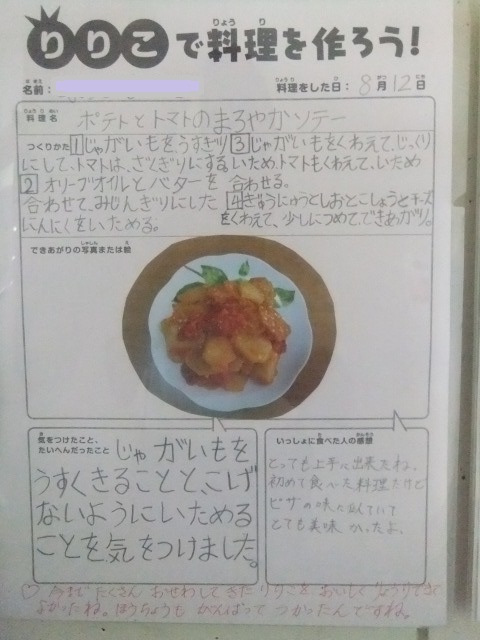 りりこで料理を作ろう!
名前:
料理をした日: 8月12日
料理名 ポテトとトマトのまろやかソテー
つくりかた 1 じゃがいもをうすぎり
にして、トマトは、ざくぎりにする。
2 オリーブオイルとバターを
合わせて、みじんぎりにした
にんにくをいためる。
3 じゃがいもをくわえて、じっくり
いためトマトもくわえて、いため
合わせる。
4 ぎゅうにゅうとしおとこしょうとチーズ
をくわえて、少しにつめて、できあがり。
できあがりの写真または絵
気をつけたこと、
たいへんだったこと
じゃがいもを
うすくきることと、こげ
ないようにいためる
ことを気をつけました。
いっしょに食べた人の感想
とっても上手に出来たね。
初めて食べた料理だけど
ピザの味に似ていて
とても美味かったよ。
♡今までたくさんおせわしてきたりりこをおいしく
よかったね。ほうちょうもがんばってつかったんですね。